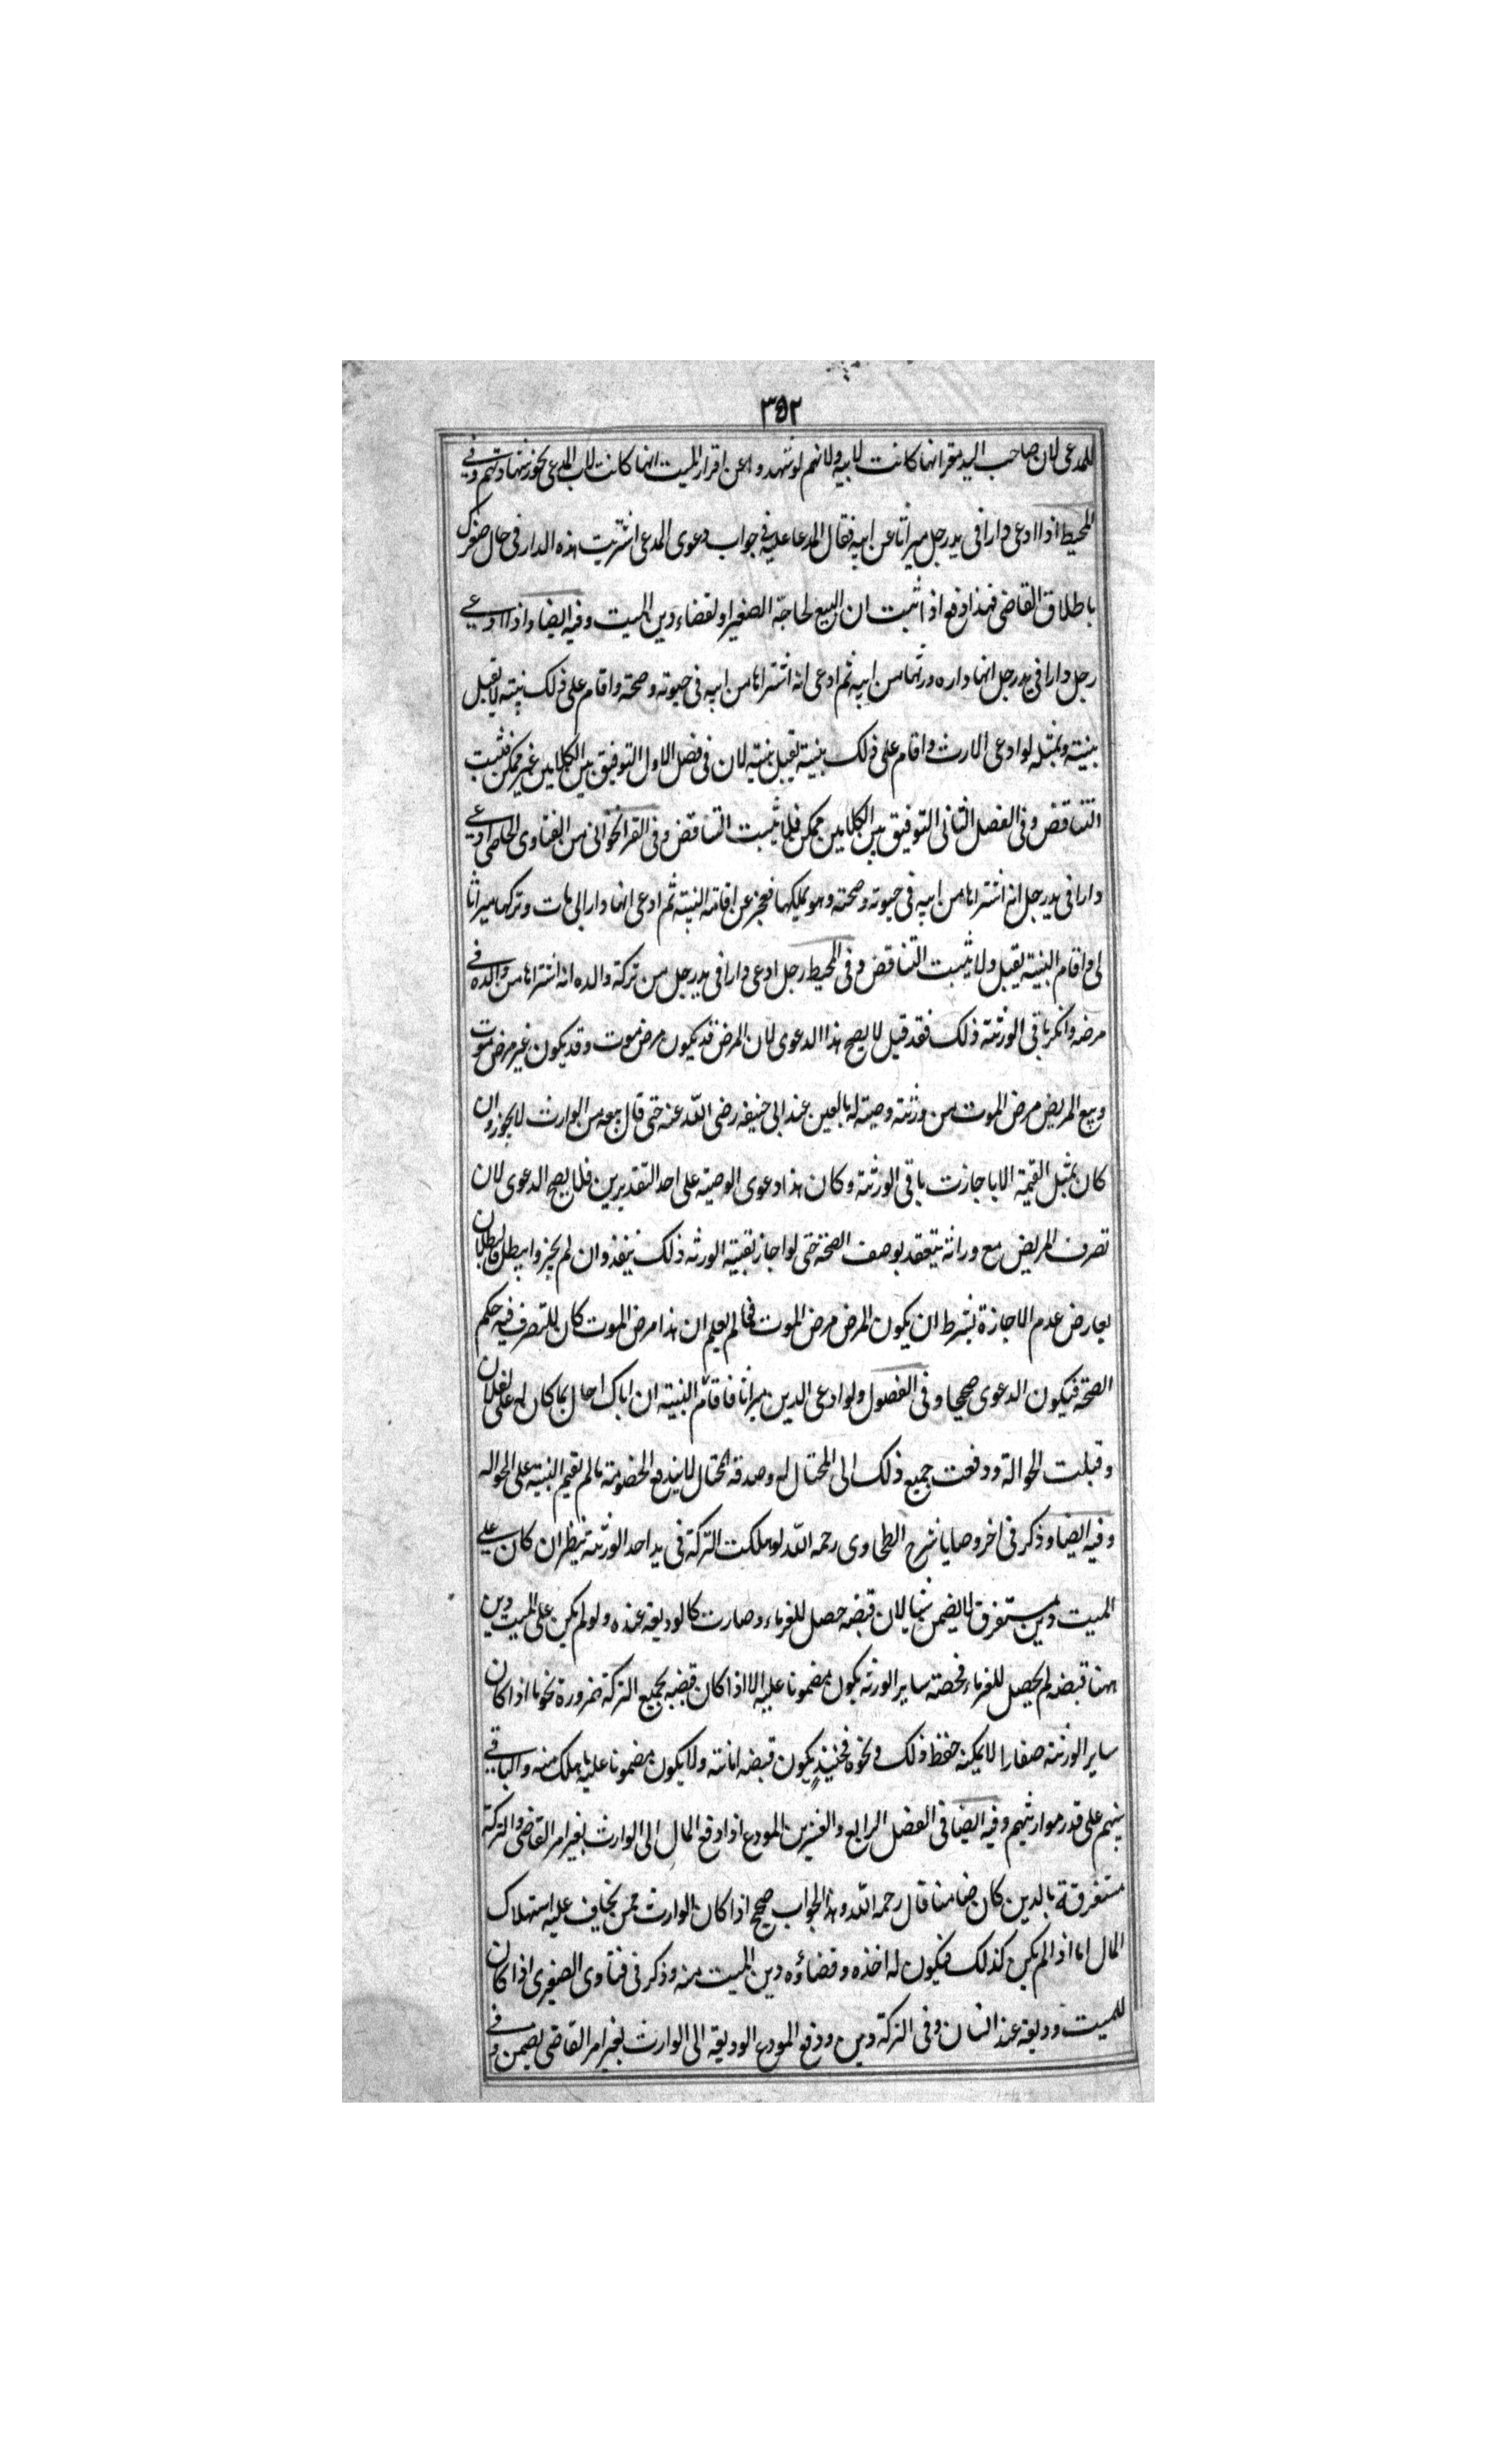 ٣٥٢
للمدعى لان صاحب اليد مقر انها كانت لابيه ولانهم لو شهدوا عن اقرار الميت انها كانت لاب المدعى يجوز شهادتهم وفى
المحيط اذا ادعى دارا فى يد رجل ميراثا عن ابيه فقال المدعا عليه فى جواب دعوى المدعى اشتريت هذه الدار فى حال صغرك
باطلاق القاضى فهذا دفع اذا ثبت ان البيع لحاجة الصغير او لقضاء دين الميت وفيه ايضا واذا ادعى
رجل دارا فى يد رجل انها داره ورثها من ابيه ثم ادعى انه اشتراها من ابيه فى حيوته وصحته واقام على ذلك بينة لا يقبل
بينته وبمثله لو ادعى الارث واقام على ذلك بينة يقبل بينته لان فى فصل الاول التوفيق بين الكلامين غير ممكن فثبت
التناقض وفى الفصل الثانى التوفيق بين الكلامين ممكن فلا يثبت التناقض وفى القراخوانى من الفتاوى الخاصى ادعى
دارا فى يد رجل انه اشتراها من ابيه فى حيوته وصحته وهو يملكها فعجز عن اقامة البينة ثم ادعى انها دار ابى مات وتركها ميراثا
لى واقام البينة يقبل ولا يثبت التناقض وفى المحيط رجل ادعى دارا فى يد رجل من تركة والده انه اشتراها من والده فى
مرضه وانكر باقى الورثة ذلك فقد قيل لا يصح هذا الدعوى لان المرض قد يكون مرض موت وقد يكون غير مرض موت
وبيع المريض مرض الموت من ورثته وصية له بالعين عند ابى حنيفه رضى الله عنه حتى قال بيعه من الوارث لا يجوز وان
كان بمثل القيمة الا باجازت باقى الورثة وكان هذا دعوى الوصية على احد التقديرين فلا يصح الدعوى لان
تصرف المريض مع وراثه ينعقد بوصف الصحة حتى لو اجاز بقية الورثه ذلك ينفذ وان لم يجيزوا يبطل فالبطلان
يعارض عدم الاجازة بشرط ان يكون المرض مرض الموت فما لم يعلم ان هذا مرض الموت كان للتصرف فيه حكم
الصحة فيكون الدعوى صحيحا وفى الفصول ولو ادعى الدين ميراثا فاقام البينة ان اباك احال بما كان له على لفلان
وقبلت الحوالة ودفعت جميع ذلك الى المحتال له وصدقه المحتال لا يندفع الخصومة ما لم يقيم البينة على الحواله
وفيه ايضا وذكر فى اخر وصايا شرح الطحاوى رحمه الله لو هلكت التركة فى يد احد الورثة ينظر ان كان على
الميت دين مستغرق لا يضمن شيا لان قبضه حصل للغرماء وصارت كالوديعة عنده ولو لم يكن على الميت دين
ههنا قبضه لم يحصل للغرماء فحصته ساير الورثه يكون مضمونا عليه الا اذا كان قبضه بجميع التركة ضرورة نحو ما اذا كان
ساير الورثة صغارا لا يمكنه حفظ ذلك ونحوه فحينئذ يكون قبضه امانة ولا يكون مضمونا عليه ما هلك منه والباقى
بينهم على قدر مواريثهم وفيه ايضا فى الفصل الرابع والعشرين المودع اذا دفع المال الى الوارث بغير امر القاضى والتركة
مستغرقة بالدين كان ضامنا قال رحمه الله وهذا الجواب صحيح اذا كان الوارث ممن يخاف عليه استهلاك
المال اما اذا لم يكن كذلك فيكون له اخذه وقضاؤه دين الميت منه وذكر فى فتاوى الصغيرى اذا كان
للميت وديعة عند انسان وفى التركة دين ودفع المودع الوديعة الى الوارث بغير امر القاضى يضمن وفى